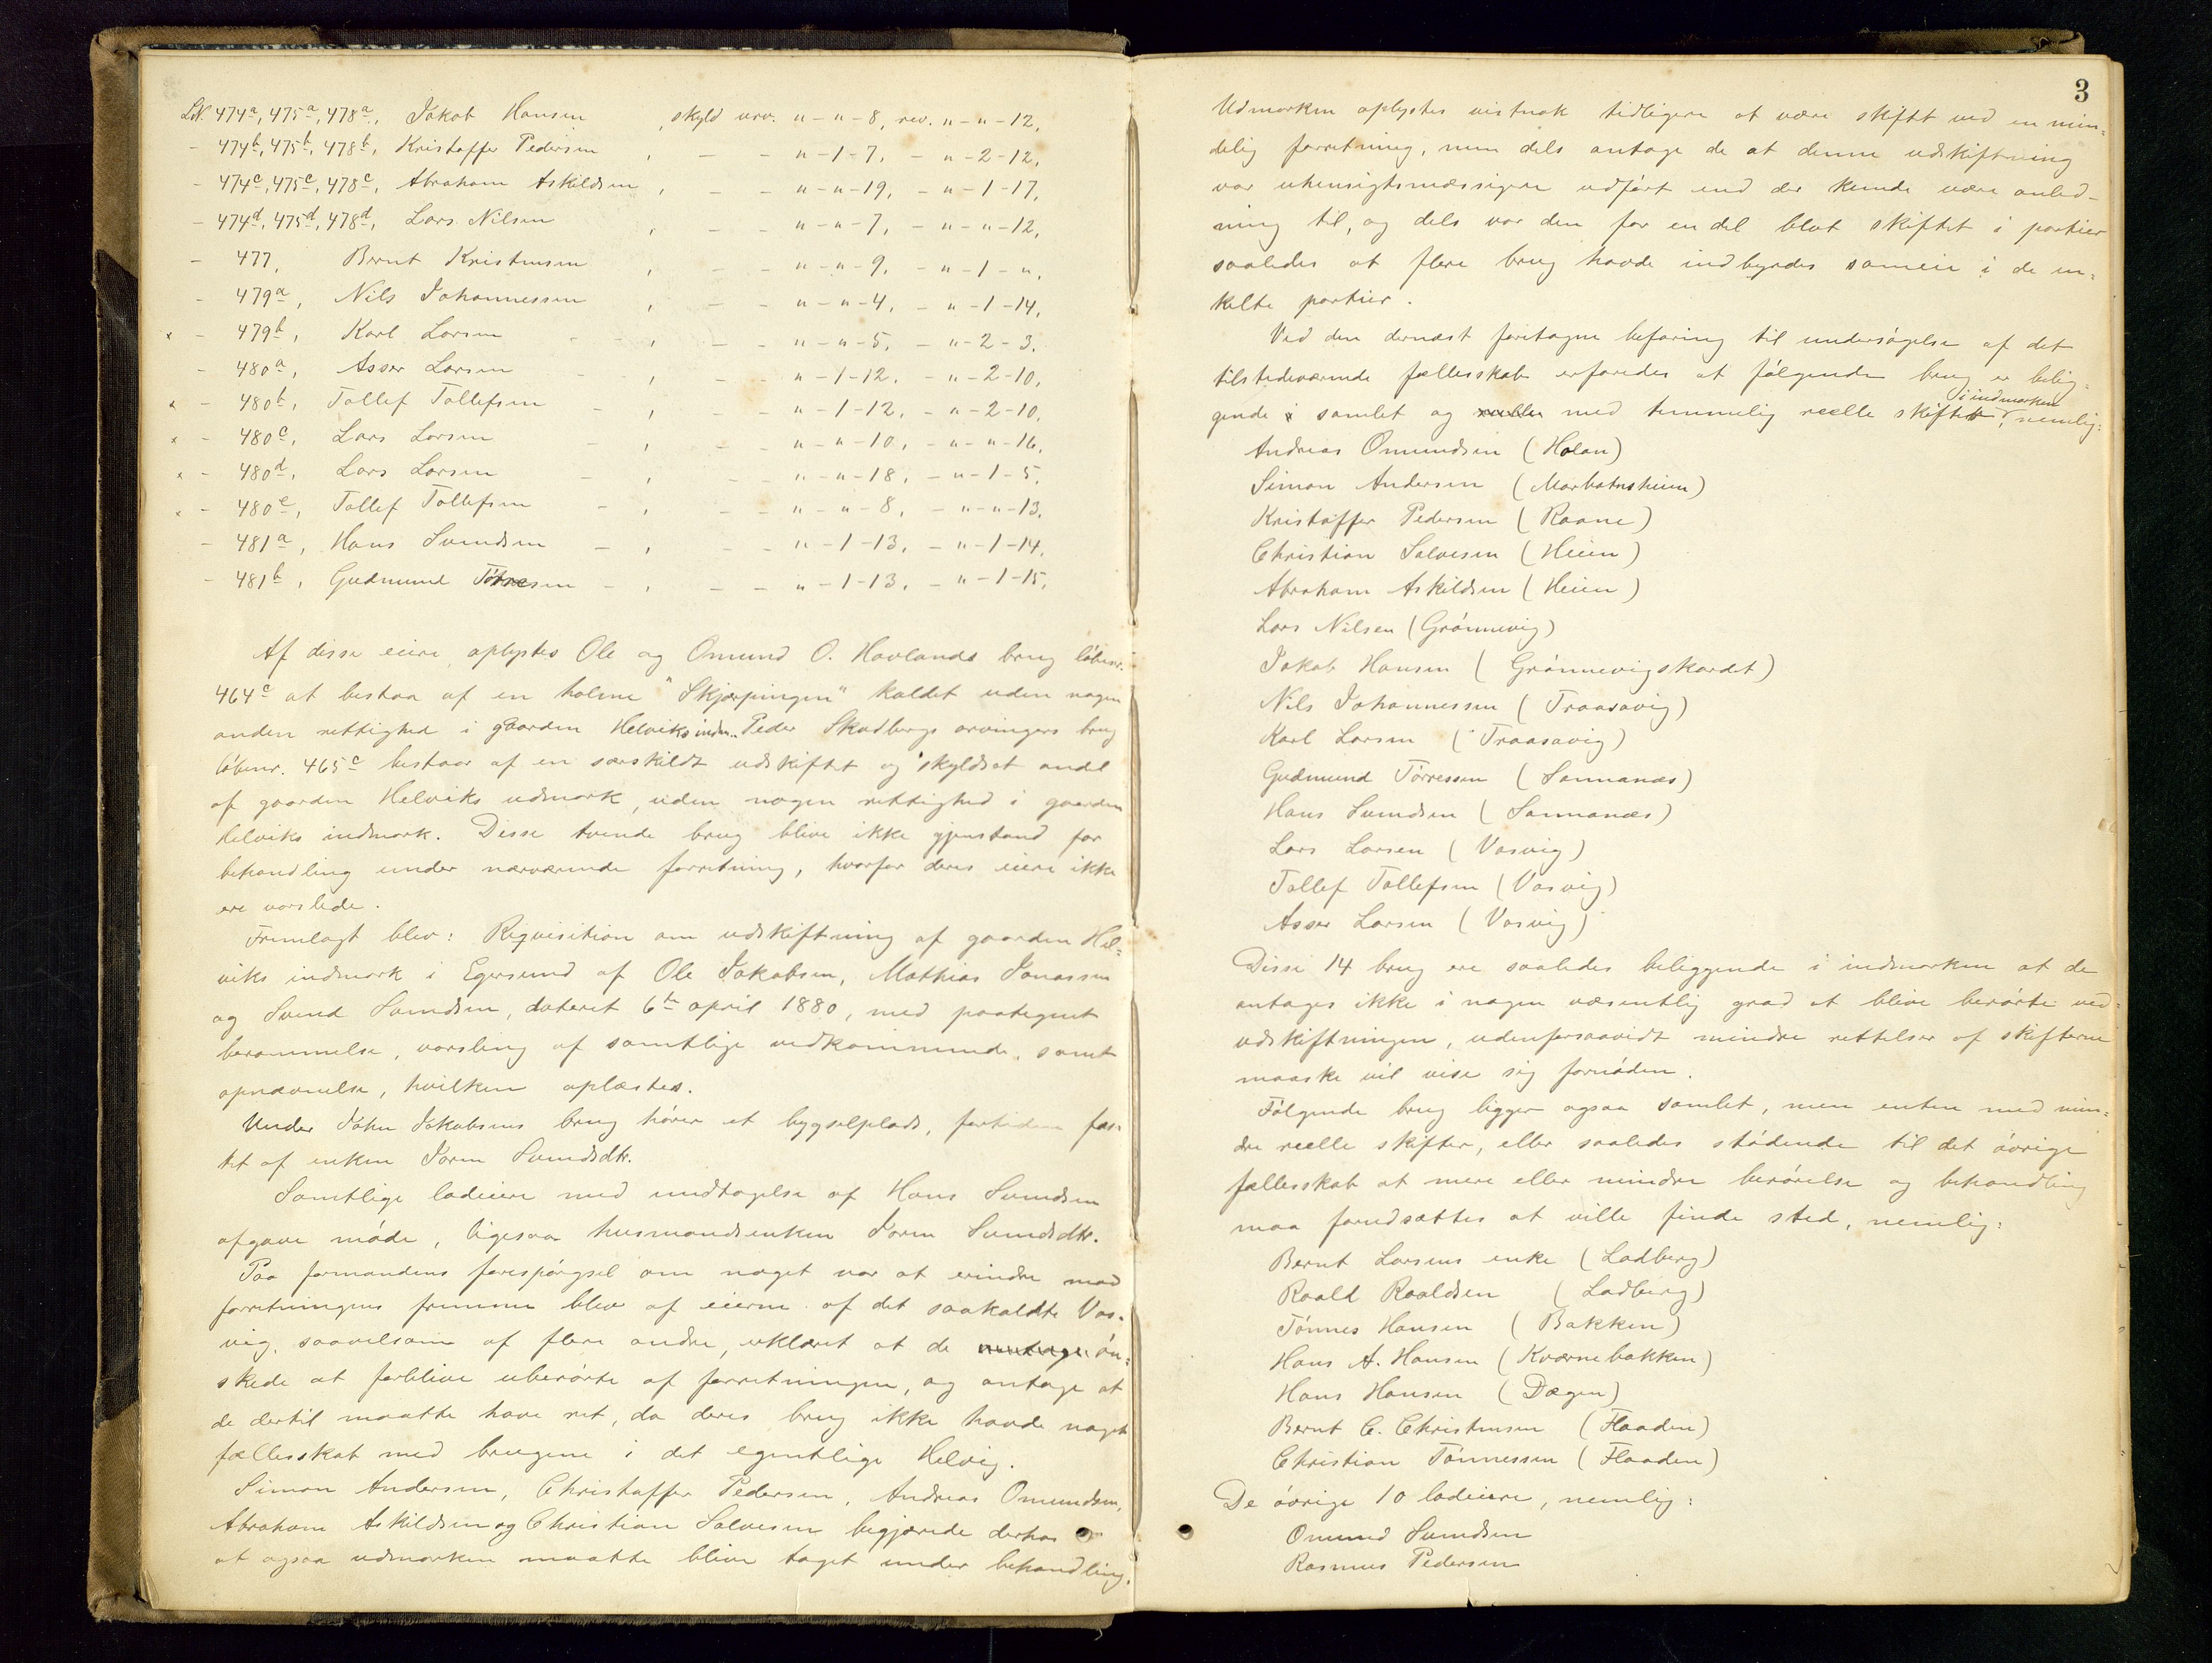 LN. 474a, 475a, 478a, Jakob Hansen , skyld urv. " - " - 8, rev. " - " - 12,
- 474b, 475b, 478b, Kristoffer Pedersen , - - " - 1 - 7, - " - 2 - 12,
- 474c, 475c, 478c, Abraham Askildsen , - - " - " - 19, - " - 1 - 17,
- 474d, 475d, 478d, Lars Nilsen , - - " - " - 7, - " - " - 12,
- 477, Bernt Kristensen , - - " - " - 9, - " - 1 - ",
- 479a, Nils Johannessen , - - " - " - 4, - " - 1 - 14,
x - 479b, Karl Larsen - - , - - " - " - 5, - " - 2 - 3.
- 480a, Asser Larsen - - , - - " - 1 - 12, - " - 2 - 10,
x - 480b, Tollef Tollefsen - , - - " - 1 - 12, - " - 2 - 10,
x - 480c, Lars Larsen - , - - " - " - 10, - " - " - 16,
x - 480d, Lars Larsen - , - - " - " - 18, - " - 1 - 5,
x - 480e, Tollef Tollefsen - , - - " - " - 8, - " - " - 13,
- 481a, Hans Svendsen - , - - " - 1 - 13, - " - 1 - 14,
- 481b, Gudmund Tørresen - , - - " - 1 - 13, - " - 1 - 15,
Af disse eiere oplystes Ole og Omund O. Hovlands brug løbenr.
464c at bestaa af en holme "Skjærpingen" kaldet uden nogen
anden rettighed i gaarden Helviks indm. Peder Skadbergs arvingers brug
løbenr. 465c bestaar af en særskildt udskiftet og skyldsat andel
af gaarden Helviks udmark, uden nogen rettighed i gaarden
Helviks indmark. Disse tvende brug blive ikke gjenstand for
behandling under nærværende forretning, hvorfor deres eiere ikke
ere varslede.
Fremlagt blev: Reqvisition om udskiftning af gaarden Hel=
viks indmark i Egersund af Ole Jakobsen, Mathias Jonassen
og Svend Svendsen, dateret 6te april 1880, med paategnet
berammelse, varsling af samtlige vedkommende, samt
opnævnelse, hvilken oplæstes.
Under John Jakobsens brug hører et bygselplads, fortiden fæs-
tet af enken Joren Svendsdtr.
Samtlige lodeiere med undtagelse af Hans Svendsen
afgave møde, ligesaa husmandsenken Joren Svendsdtr.
Paa formandens forespørgsel om noget var at erindre mod
forretningens fremme blev af eierne af det saakaldte Vas-
vig, saavelsom af flere andre, erklæret at de øn=
skede at forblive uberørte af forretningen, og antage at
de dertil maatte have ret, da deres brug ikke havde noget
fællesskab med brugene i det egentlige Helvig.
Simon Andersen, Christoffer Pedersen, Andreas Omundsen,
Abraham Askildsen og Christian Salvesen begjærede derhos
at ogsaa udmarken maatte blive taget under behandling.
3
Udmarken oplystes vistnok tidligere at være skiftet ved en min=
delig forretning, men dels antage de at denne udskiftning
var uhensigtsmæssigere udført end der kunde være anled-
ning til, og dels var den for en del blot skiftet i partier
saaledes at flere brug havde indbyrdes sameie i de en=
kelte partier.
Ved den dernæst foretagne befaring til undersøgelse af det
tilstedeværende fællesskab erfaredes at følgende brug er belig=
gende samlet og med temmelig reelle skifter i indmarken, nemlig:
Andreas Omundsen (Holan)
Simon Andersen (Marbatnsheien)
Kristoffer Pedersen (Raane)
Christian Salvesen (Heien)
Abraham Askildsen (Heien)
Lars Nilsen (Grønnevig)
Jakob Hansen (Grønnevigskardet)
Nils Johannessen (Traasavig)
Karl Larsen (Traasavig)
Gudmund Tørressen (Sannanæs)
Hans Svendsen (Sannanæs)
Lars Larsen (Vasvig)
Tollef Tollefsen (Vasvig)
Asser Larsen (Vasvig)
Disse 14 brug ere saaledes beliggende i indmarken at de
antages ikke i nogen væsentlig grad at blive berørte ved=
udskiftningen, udenforsaavidt mindre rettelser af skifterne
maaske vil vise sig fornøden.
Følgende brug ligger ogsaa samlet, men enten med min=
dre reelle skifter, eller saaledes stødende til det øvrige
fællesskab at mere eller mindre berørelse og behandling
maa forudsættes at ville finde sted, nemlig:
Bernt Larsens enke (Ladberg)
Roald Roaldsen (Ladberg)
Tønnes Hansen (Bakken)
Hans A. Hansen (Kværnebakken)
Hans Hansen (Dægen)
Bernt C. Christensen (Flaaden)
Christian Tønnessen (Flaaden)
De øvrige 10 lodeiere, nemlig:
Omund Svendsen
Rasmus Pedersen